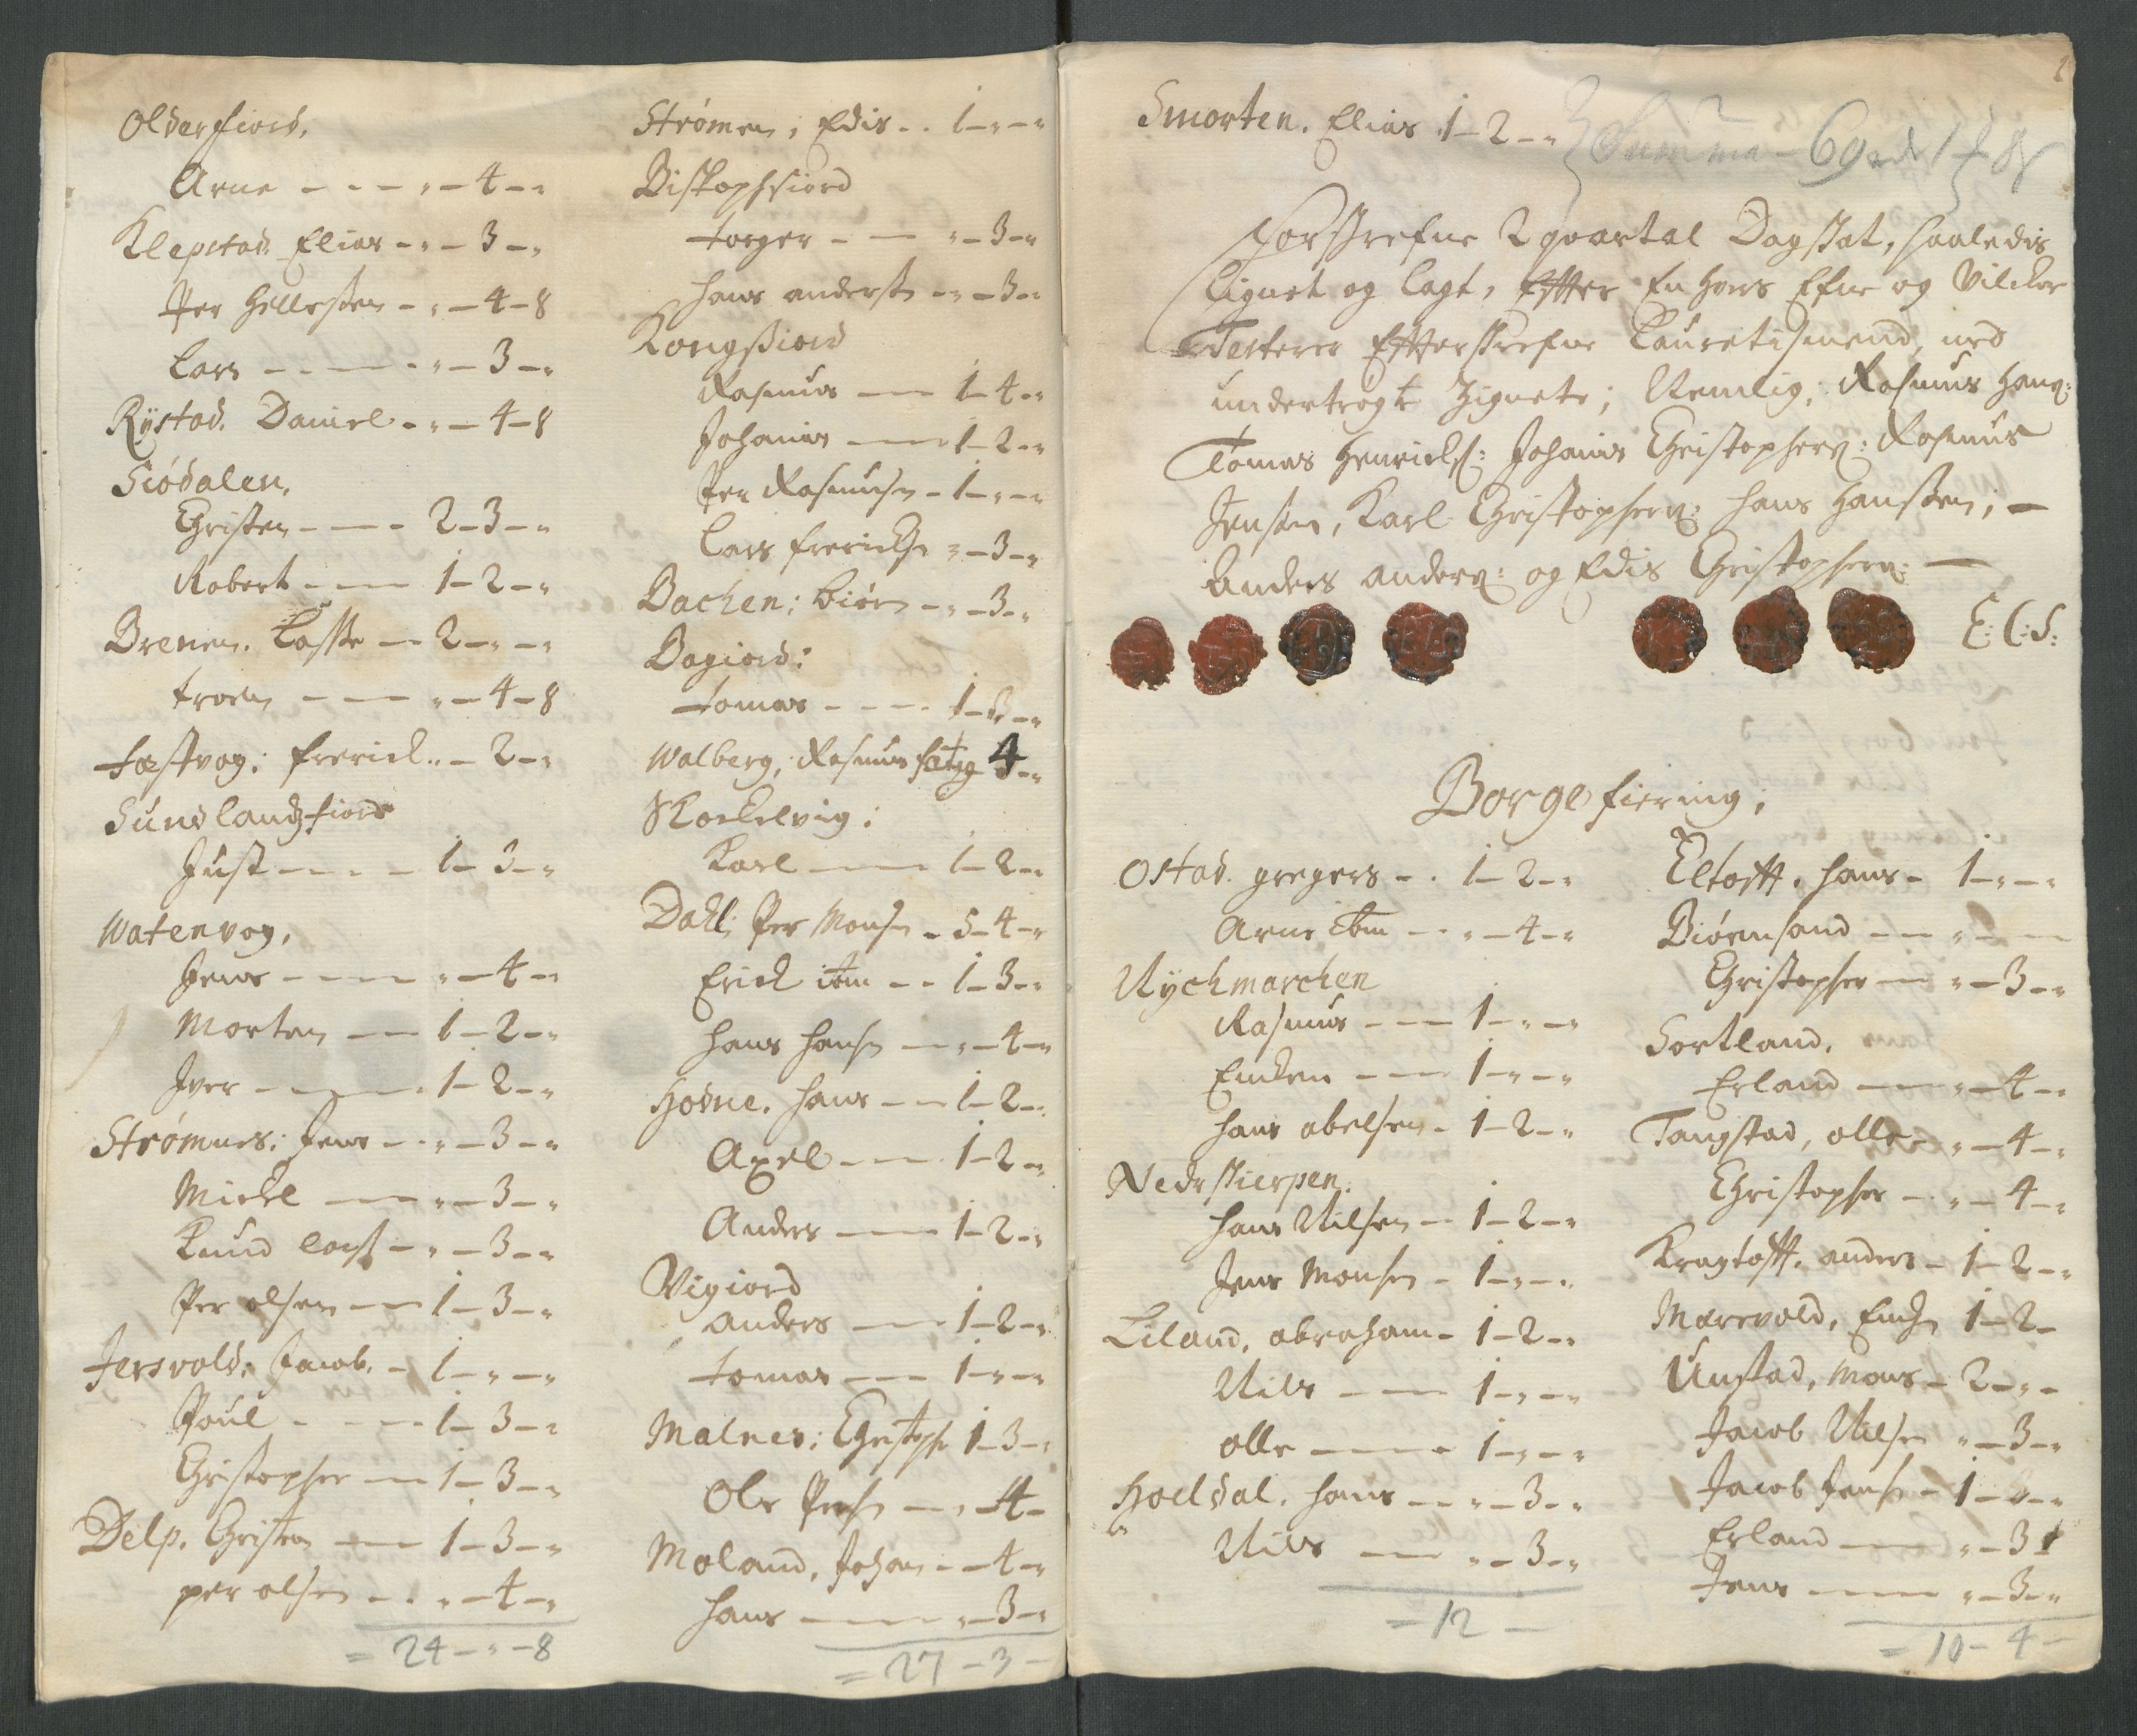 Olderfiord,
Arne - - - " - 4 - "
Klepstad Elias - " - 3 - "
Per Hellesen - " - 4 - 8
Lars - - - " - 3 - "
Rystad. Daniel - " - 4 - 8
Siødalen,
Christen - - - 2 - 3 - "
Robert - - 1 - 2 - "
Brenen. Lasse - 2 - " - "
troen - - - " - 4 - 8
Fæstvog; frerick " - 2 - "
Sundlandzfiord
Just - - - 1 - 3 - "
Watenvog,
Jens - - - " - 4 - "
Morten - - 1 - 2 - "
Iver - - - 1 - 2 - "
Strømnes; Jens - " - 3 - "
Mickel - - " - 3 - "
Knud - " - 3 - "
Per olsen - - 1 - 3 - "
Jersvold; Jacob. - 1 - " - "
Poul - - - 1 - 3 - "
Christopher - 1 - 3 - "
Delp. Christen - 1 - 3 - "
per olsen - - " - 4 - "
= 24 - " - 8
Strømen; Edis - - 1 - " - "
Biskopfiord
torger - - " - 3 - "
hans andersen - " - 3 - "
Kongsfiord
Rasmus - - 1 - 4 - "
Johanis - - 1 - 2 - "
Per Rasmusen - 1 - " - "
Lars frericksen " - 3 - "
Bachen; Biørn - " - 3 - "
Bogiord:
tomas - - - 1 - - "
Walberg, Rasmus fatig 4 - "
Skockelvig;
Karl - - 1 - 2 - "
Dahl; Per Monsen - 5 - 4 - "
Erick itm - - 1 - 3 - "
hans hansen - " - 4 - "
Hodne. hans - - 1 - 2 - "
Axel - - 1 - 2 - "
Anders - - 1 - 2 - "
Vigiord
anders - - 1 - 2 - "
tomas - - 1 - " - "
Malnes; Christopher 1 - 3 - "
Ole - " - 4 -
Moland, Johan - - 4 - "
hans - - - " - 3 - "
= 27 - 3 -
Smorten. Elias 1 - 2 - " Summa - 69 1 8
Forskrefne 2 quartal Dagskat, saaledis
lignet og lagt, effter En hvers Efne og Vilckor
Testerer Effterskrefne Laugretismend, med
undertrögte Zignete; Nemlig; Rasmus Hans:
Tomas Henricks: Johanis Christophers: Rasmus
Jensen, Karl Christophers: hans Hansen; -
Anders anders: og Edis Christophers: -
E: C: S:
Borge fiering;
Ostad. gregers - . 1 - 2 - "
Arne itm - - " - 4 - "
Nychmarchen
Rasmus - - 1 - " - "
Encken - - 1 - " - "
hans abelsen - 1 - 2 - "
Nedr skierpen.
hans Nilsen - 1 - 2 - "
Jens Monsen - 1 - " - "
Liland, abraham - 1 - 2 - "
Nils - - 1 - " - "
olle - - - 1 - " - "
Hoeldal. hans - - " - 3 - "
Nils - - " - 3 - "
= 12 -
Eltofft. hans - 1 - " - "
Biørnsand - - " - -
Christopher - " - 3 - "
Sortland,
Erland - - " - 4 - "
Tangstad, olle - " - 4 - "
Christopher - " - 4 - "
Kragtofft. anders - 1 - 2 - "
Mærvold, 1 - 2 -
Unstad, Mons - 2 - " -
Jacob Nilsen " - 3 - "
Jacob Jensen - 1 - - "
Erland - - " - 3
Jens - - - " - 3 - "
= 10 - 4 -